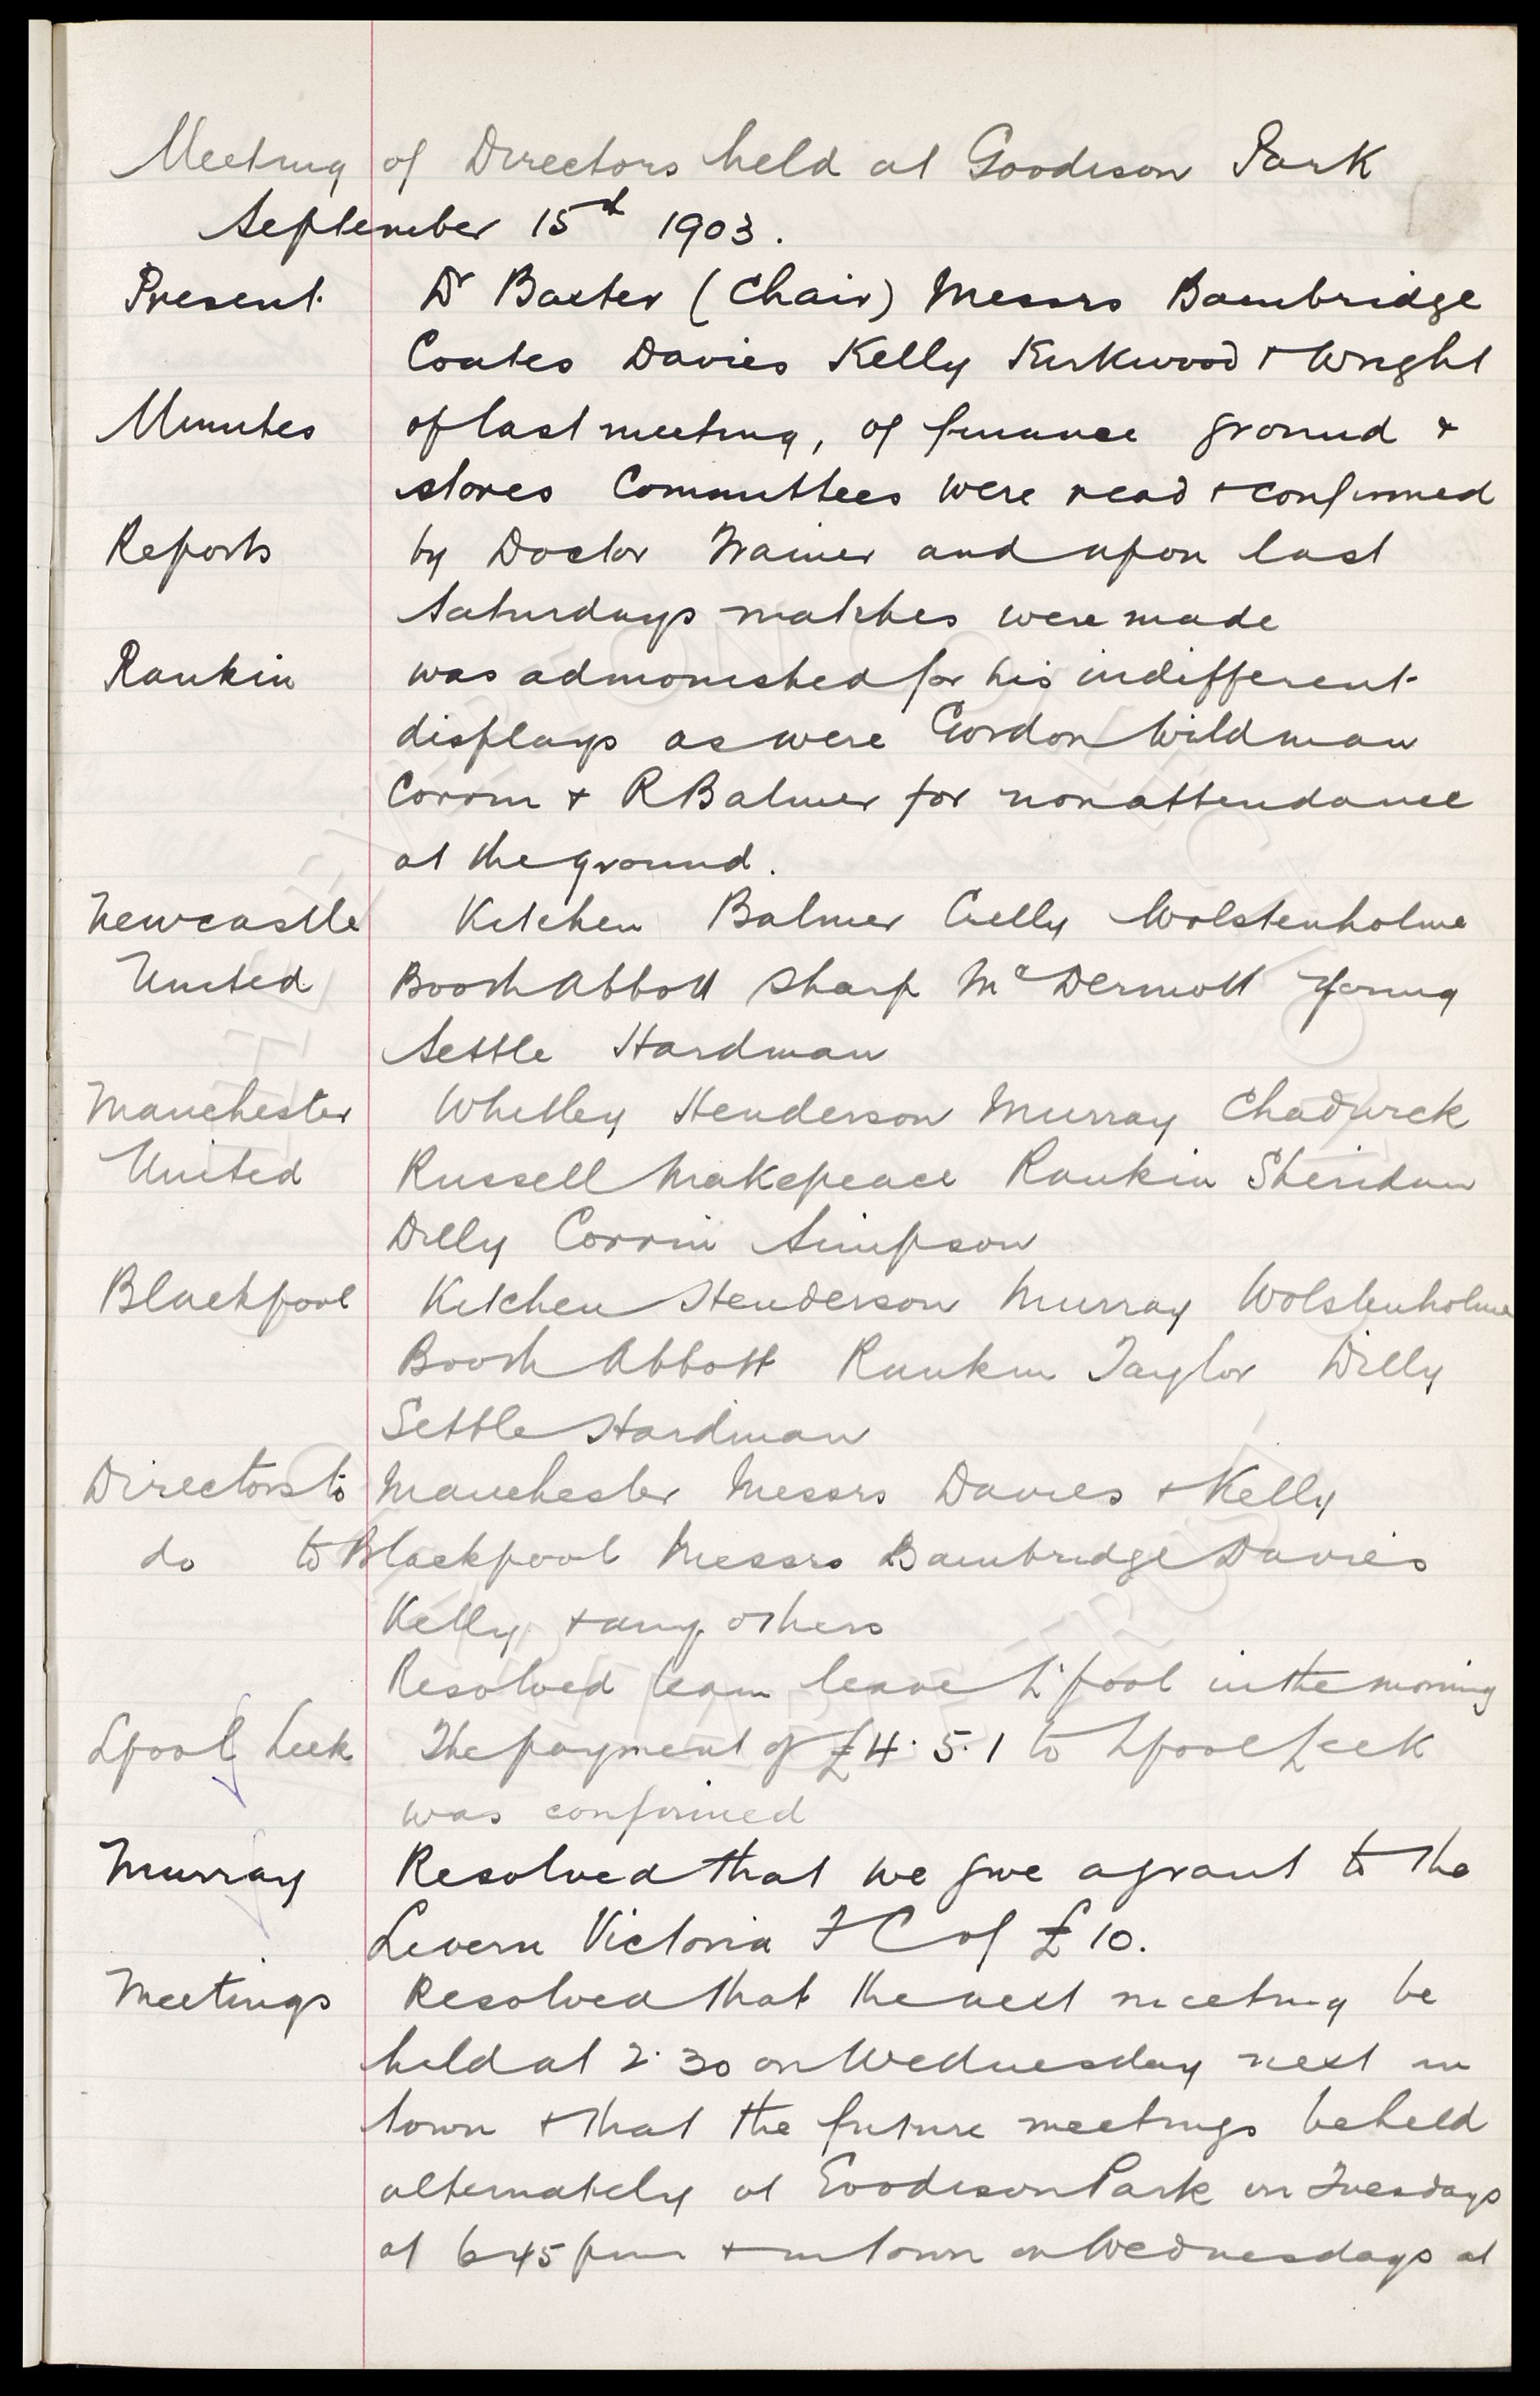 Meeting of Directors held at Goodison Park
September 15th 1903.
Present Dr Baxter (Chair) Messrs Bainbridge
Coates Davies Kelly Kirkwood + Wright
Minutes of last meeting, of finance ground +
stores Committees were read + confirmed
Reports by Doctor Trainer and upon last
Saturdays matches were made
Rankin was admonished for his indifferent
displays as were Gordon Wildman
Corrin + R Balmer for non attendance
at the ground.
Newcastle Kitchen Balmer Crelly Wolstenholme
United Booth Abbott Sharp McDermott Young
Settle Hardman
Manchester Whitley Henderson Murray Chadwick
United Russell Makepeace Rankin Sheridan
Dilly Corrin Simpson
Blackpool Kitchen Henderson Murray Wolstenholme
Booth Abbott Rankin Taylor Dilly
Settle Hardman
Directors to Manchester Messrs Davies + Kelly
do to Blackpool Messrs Bainbridge Davies
Kelly + any others
Resolved team leave L'pool in the morning
Lpool Leek The payment of £4.5.1 to Lpool Leek
was confirmed
Murray Resolved that we give a grant to the
Levern Victoria F C of £10.
Meetings Resolved that the next meeting be
held at 2.30 on Wednesday next in
town + that the future meetings be held
alternately at Goodison Park on Tuesdays
at 6 45 pm + in town on Wednesdays at